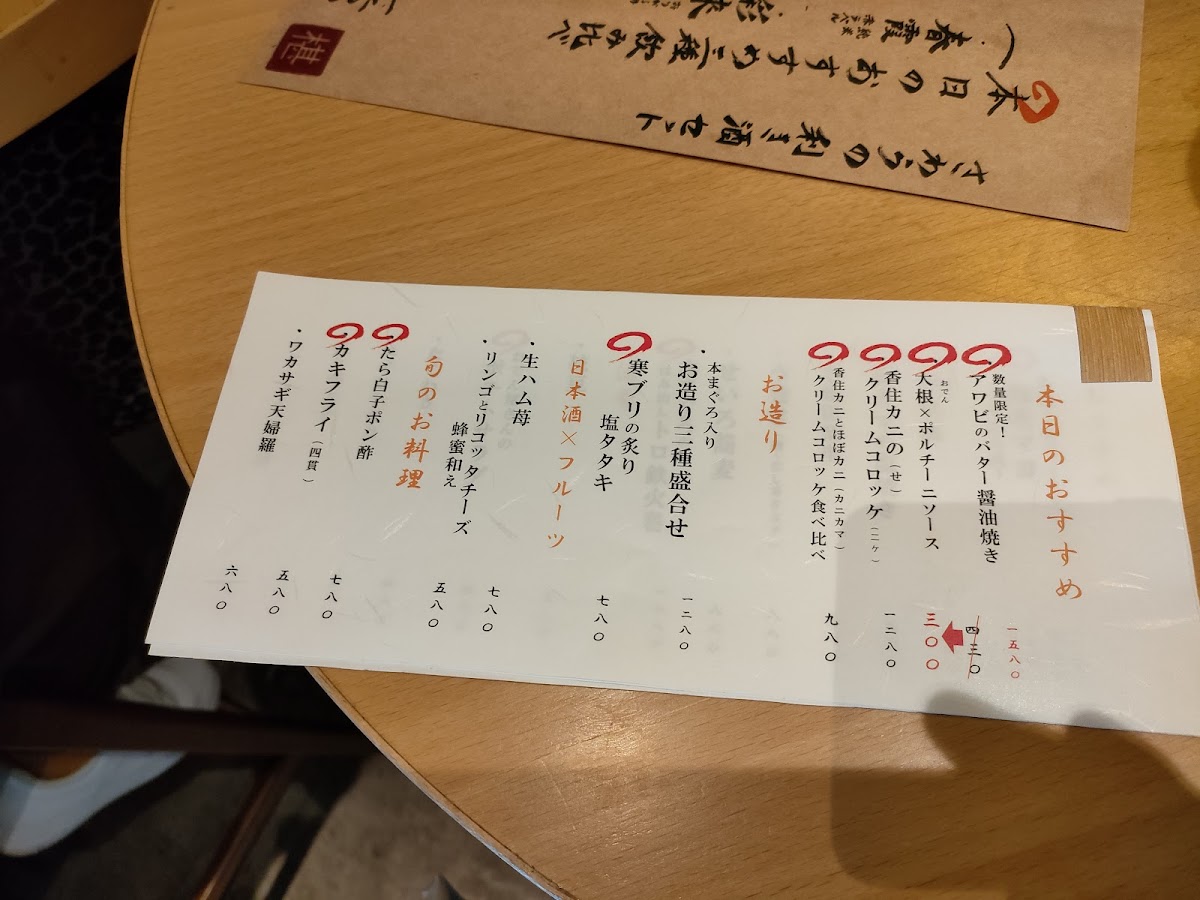 本日のおすすめ
数量限定!
アワビのバター醤油焼き 一五八〇
おでん
大根×ポルチーニソース 四三〇 三〇〇
香住カニの(せ)
クリームコロッケ(二ヶ) 一二八〇
香住カニとほぼカニ(カニカマ)
クリームコロッケ食べ比べ 九八〇
お造り
・本まぐろ入り
お造り三種盛合せ 一二八〇
寒ブリの炙り
塩タタキ 七八〇
日本酒×フルーツ
・生ハム苺 七八〇
・リンゴとリコッタチーズ
蜂蜜和え 五八〇
旬のお料理
たら白子ポン酢 七八〇
カキフライ(四貫) 五八〇
・ワカサギ天婦羅 六八〇
さわらの利き酒セット
本日のおすすめ三種飲み比べ
春霞